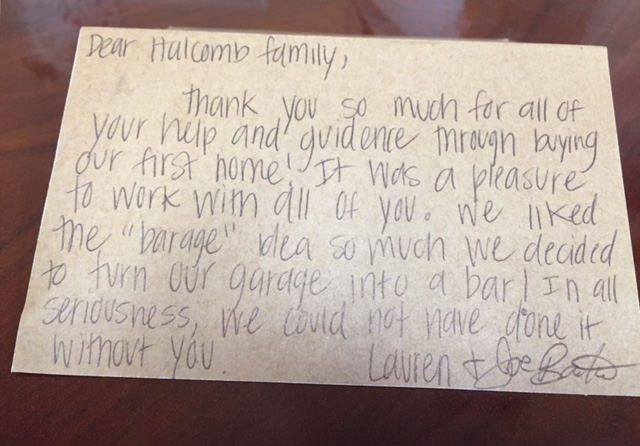 Dear Halcomb family,
Thank you so much for all of
your help and guidence through buying
our first home! It was a pleasure
to work with all of you. We liked
the "barage" idea so much we decided
to turn our garage into a bar! In all
seriousness, we could not have done it
without you.
Lauren + Joe